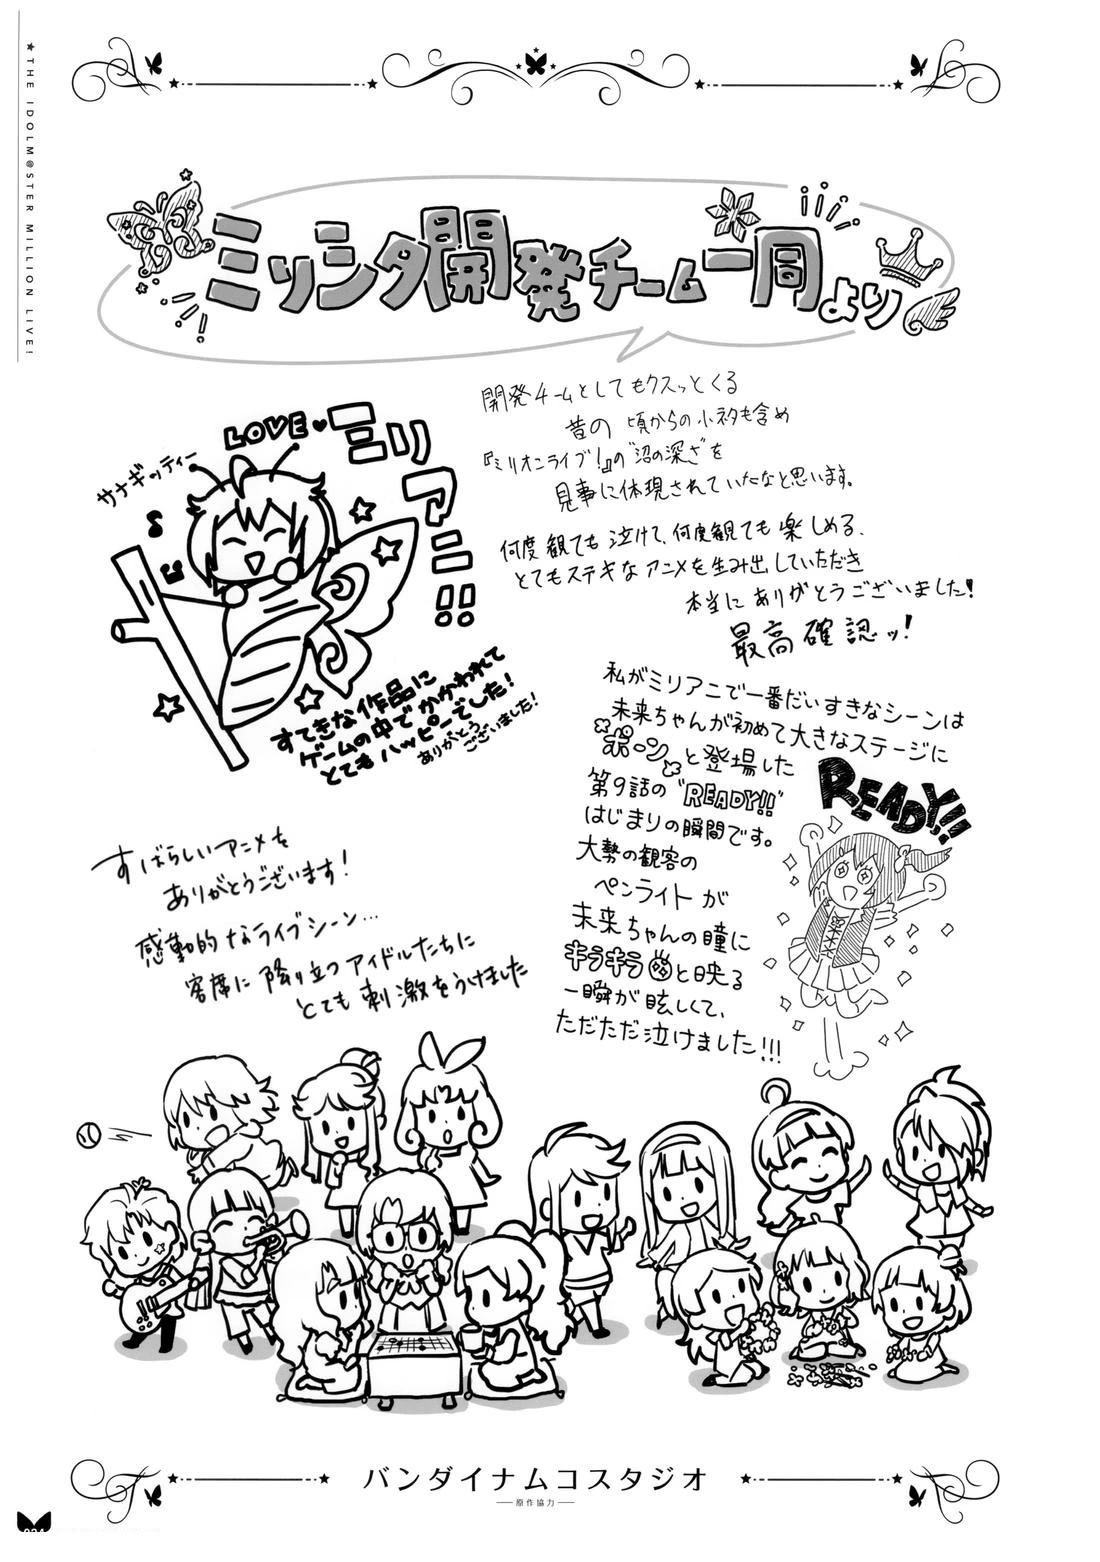 ★THE IDOLM@STER MILLION LIVE!
ミリシタ開発チーム一同より
LOVE♥ミリアニ!!
サナギッティー
すてきな作品に
ゲームの中でかかわれて
とてもハッピーでした!
ありがとうございました!
開発チームとしてもクスッとくる
昔の頃からの小ネタも含め
『ミリオンライブ!』の“沼の深さ”を
見事に体現されていたなと思います。
何度観ても泣けて、何度観ても楽しめる、
とてもステキなアニメを生み出していただき
本当にありがとうございました!
最高確認ッ!
私がミリアニで一番だいすきなシーンは
未来ちゃんが初めて大きなステージに
ポーンと登場した
第9話の“READY!!”
はじまりの瞬間です。
大勢の観客の
ペンライトが
未来ちゃんの瞳に
キラキラと映る
一瞬が眩しくて、
ただただ泣けました!!!
READY!!
すばらしいアニメを
ありがとうございます!
感動的なライブシーン…
客席に降り立つアイドルたちに
とても刺激をうけました
バンダイナムコスタジオ
原作協力